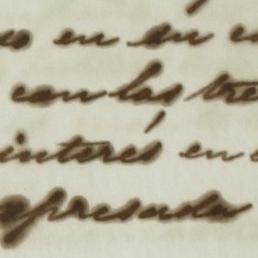 en su
con las tre
interés en
apresada